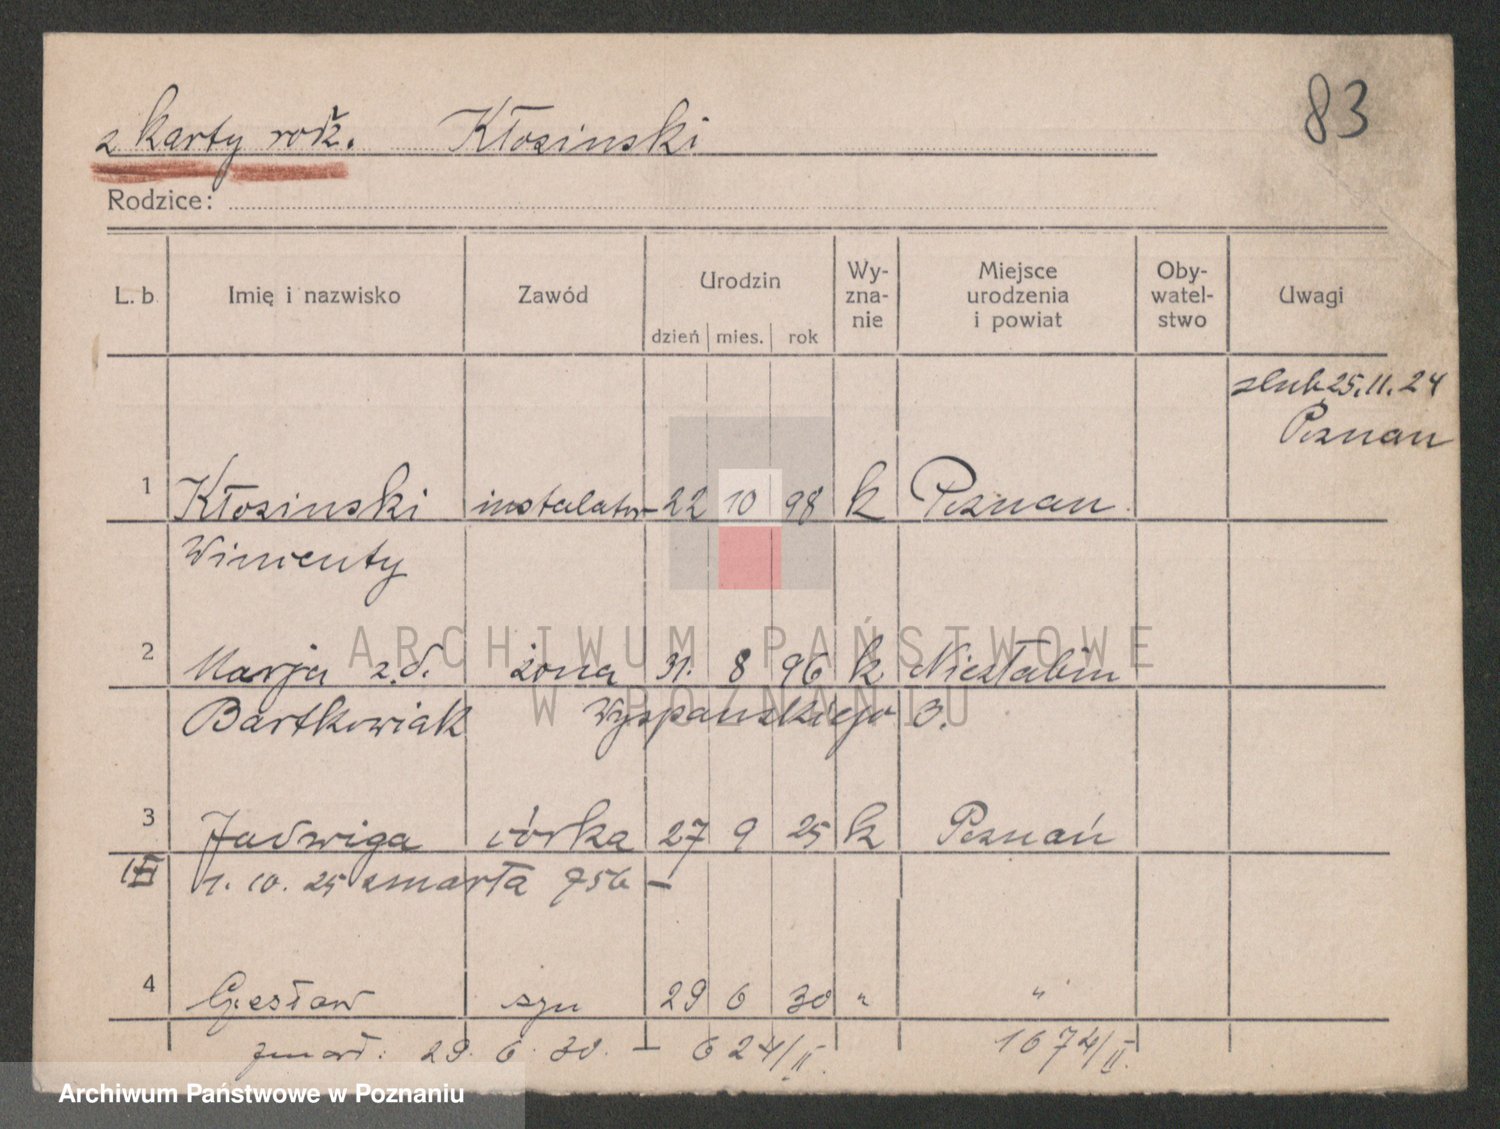 83
z karty rodz. Kłosinski
Rodzice:
L. b Imię i nazwisko Zawód Urodzin dzień mies. rok Wy-zna-nie Miejsce urodzenia i powiat Oby-watel-stwo Uwagi
slub 25.11.24
Poznan
1 Kłosinski instalator 22 10 98 k Poznan
Wincenty
2 Marja z.d. żona 31. 8 96 k
Bartkowiak Wyspanskiego 3.
3 Jadwiga córka 27 9 25 k Poznań
1. 10. 25 zmarła 756 –
4 Czesław syn 29 6 30 " "
zmarł: 29. 6. 30. – 624/II. 1674/II.
ARCHIWUM PAŃSTWOWE
W POZNANIU
Archiwum Państwowe w Poznaniu